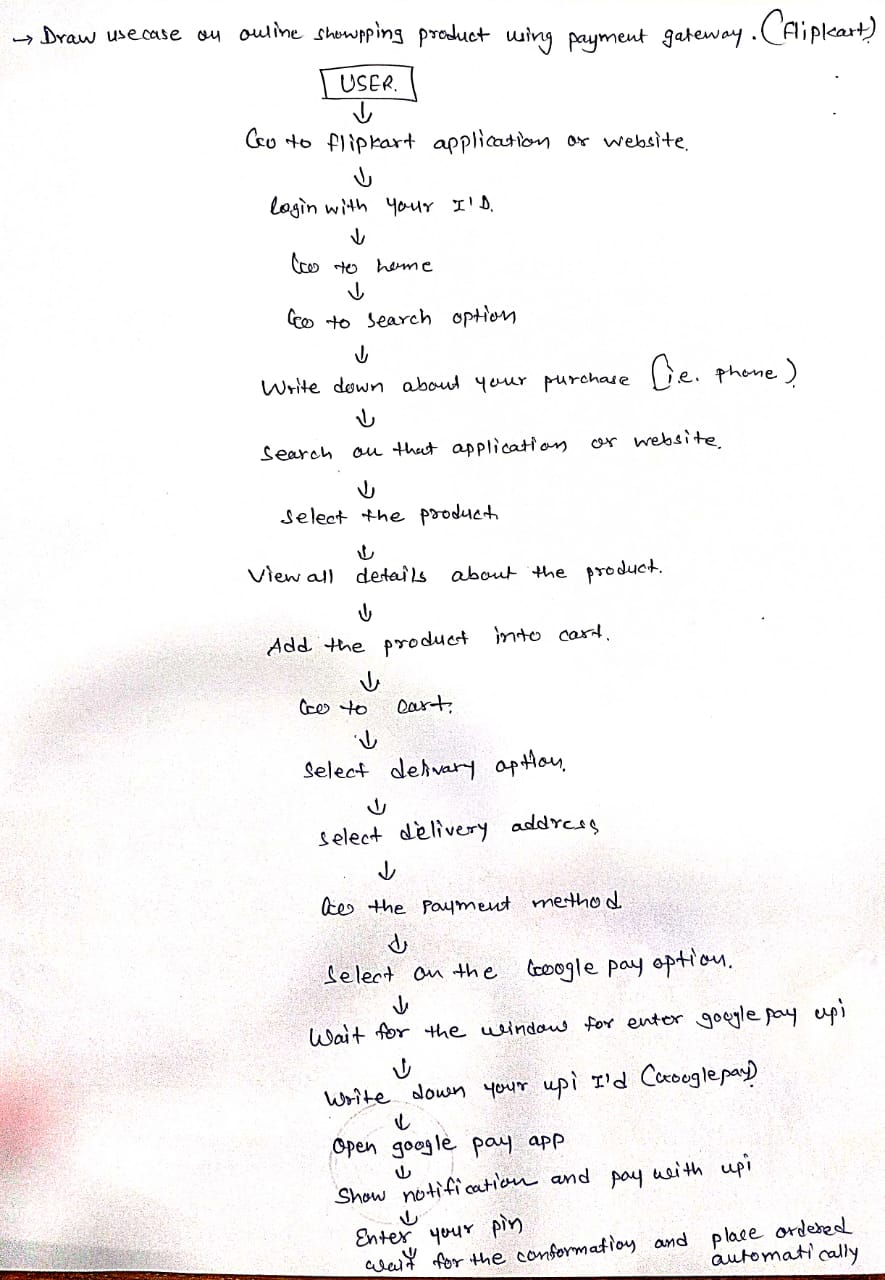 → Draw usecase on online showpping product using payment gateway. (Flipkart)
USER.
↓
Go to flipkart application or website.
↓
login with your I'D.
↓
Goo to home
↓
Goo to search option
↓
Write down about your purchase (i.e. phone)
↓
Search on that application or website.
↓
Select the product
↓
View all details about the product.
↓
Add the product into cart.
↓
Goo to cart.
↓
Select delivary option.
↓
select delivery address
↓
Goo the payment method
↓
Select on the Google pay option.
↓
Wait for the window for enter google pay upi
↓
Write down your upi I'd (Googlepay)
↓
Open google pay app
↓
Show notification and pay with upi
↓
Enter your pin
↓
wait for the conformation and place ordered
automatically